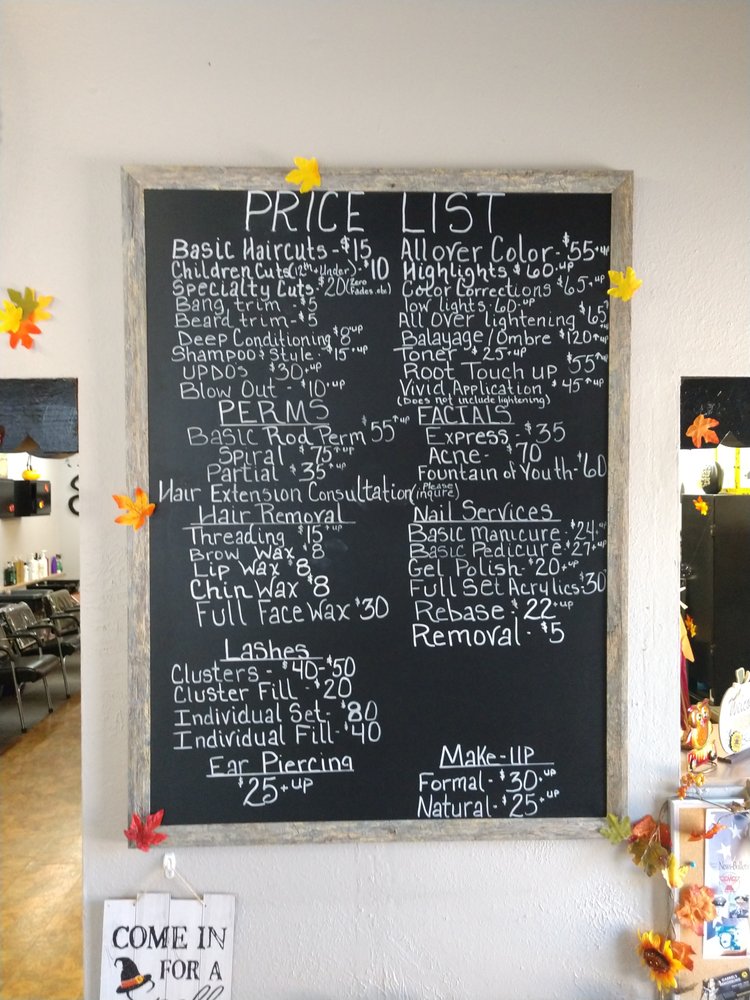 PRICE LIST
Basic Haircuts - $15
Children Cuts (12th + Under) - $10
Specialty Cuts $20 (Zero Fades, etc)
Bang trim - $5
Beard trim - $5
Deep Conditioning $8 + up
Shampoo + Style - $15 + up
UPDO'S $30 + up
Blow Out - $10 + up
PERMS
Basic Rod Perm $55 + up
Spiral - $75 + up
Partial - $35 + up
Hair Extension Consultation (Please inquire)
Hair Removal
Threading - $15 + up
Brow Wax $8
Lip Wax $8
Chin Wax $8
Full Face Wax $30
Lashes
Clusters - $40-$50
Cluster Fill - $20
Individual Set - $80
Individual Fill - $40
Ear Piercing
$25 + up
All over Color - $55 + up
Highlights $60 + up
Color Corrections $65 + up
low lights 60 + up
All Over lightening $65
Balayage/Ombre $120 + up
Toner - $25 + up
Root Touch up $55 + up
Vivid Application $45 + up
(Does not include lightening)
FACIALS
Express - $35
Acne - $70
Fountain of Youth - $60
Nail Services
Basic Manicure - $24 + up
Basic Pedicure - $27 + up
Gel Polish - $20 + up
Full Set Acrylics - $30
Rebase $22 + up
Removal - $5
Make-UP
Formal - $30 + up
Natural - $25 + up
COME IN
FOR A